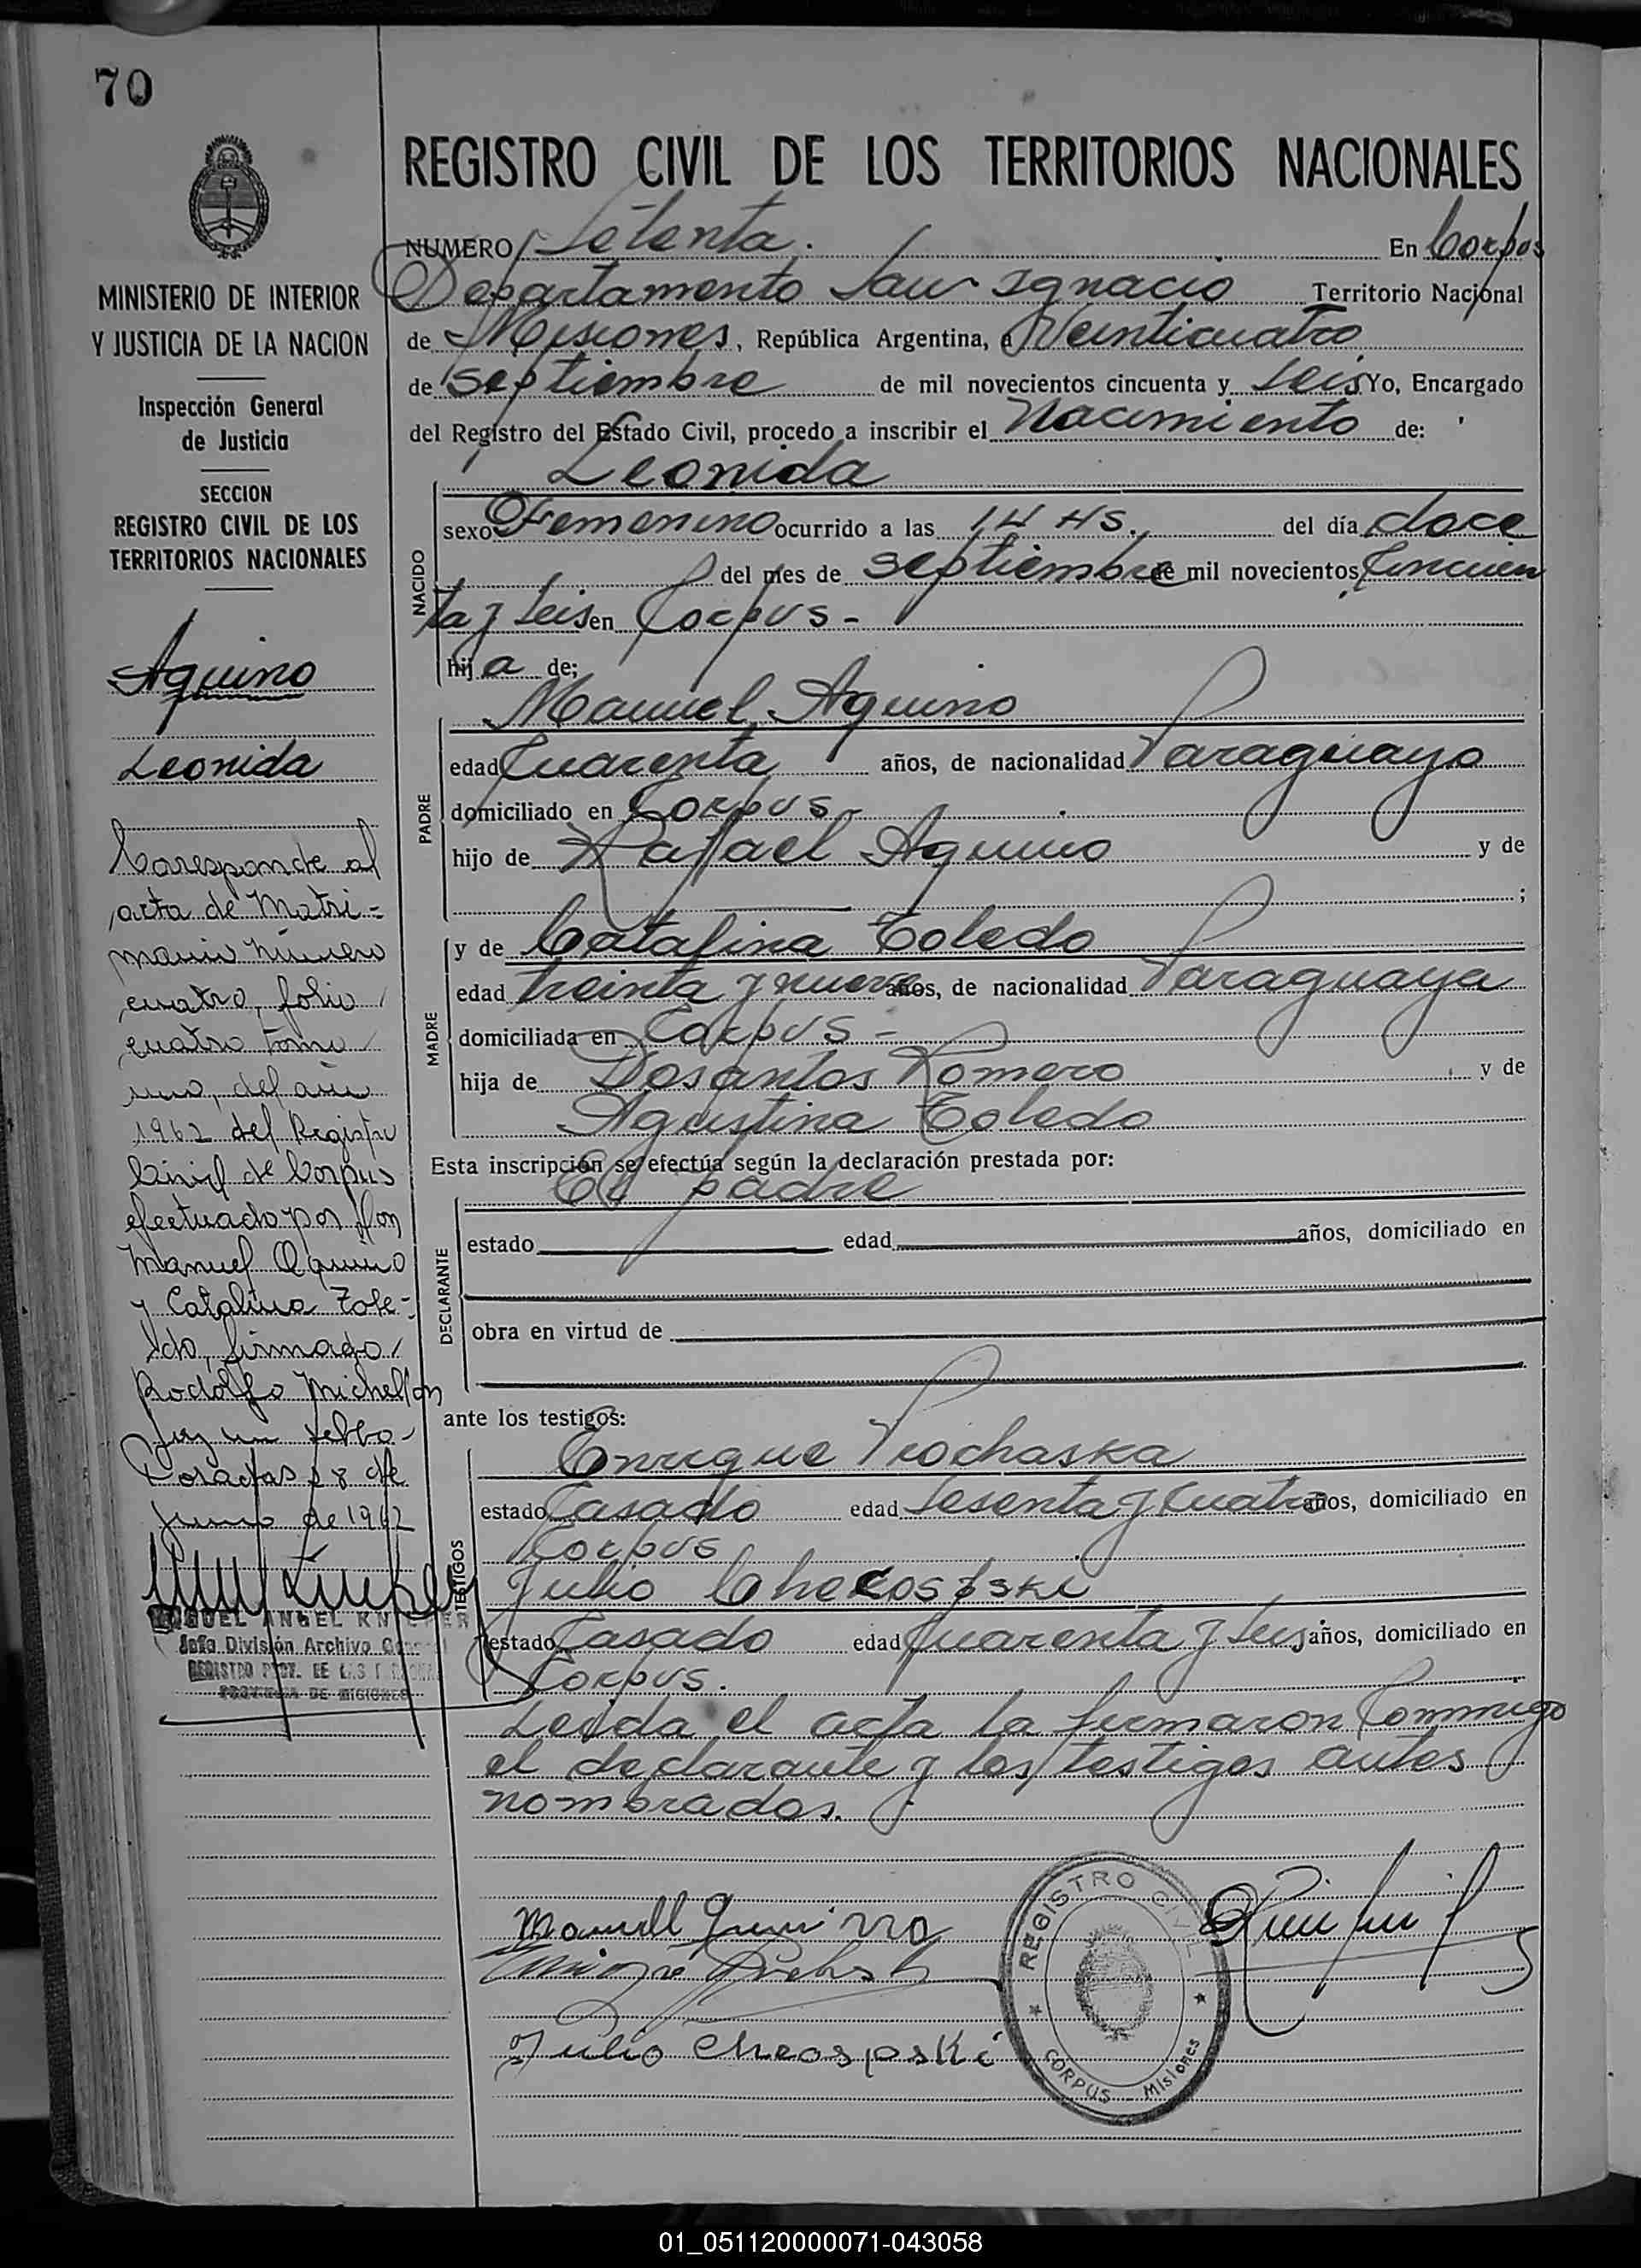 70
REGISTRO CIVIL DE LOS TERRITORIOS NACIONALES
NUMERO Setenta. En Corpus
Departamento San Ignacio Territorio Nacional
de Misiones, República Argentina, a Veinticuatro
de Septiembre de mil novecientos cincuenta y Seis Yo, Encargado
del Registro del Estado Civil, procedo a inscribir el Nacimiento de:
Leonida
sexo Femenino ocurrido a las 14 HS. del día doce
del mes de Septiembre de mil novecientos Cincuen
ta y Seis en Corpus -
hija de:
NACIDO
Manuel Aquino
edad Cuarenta años, de nacionalidad Paraguayo
domiciliado en Corpus -
hijo de Rafael Aquino y de
;
PADRE
y de Catalina Toledo
edad treinta y nueve años, de nacionalidad Paraguaya
domiciliada en Corpus -
hija de Dosantos Romero y de
Agustina Toledo
MADRE
Esta inscripción se efectúa según la declaración prestada por:
El padre
estado edad años, domiciliado en
obra en virtud de
DECLARANTE
ante los testigos:
Enrique Prochaska
estado Casado edad Sesenta y Cuatro años, domiciliado en
Corpus
Julio Checospski
estado Casado edad Cuarenta y Seis años, domiciliado en
Corpus.
TESTIGOS
Leida el acta la firmaron Conmigo
el declarante y los testigos antes
nombrados.
Julio Cheospski
REGISTRO CIVIL
CORPUS Misiones
MINISTERIO DE INTERIOR
Y JUSTICIA DE LA NACION
Inspección General
de Justicia
SECCION
REGISTRO CIVIL DE LOS
TERRITORIOS NACIONALES
Aquino
Leonida
Coresponde al
acta de Matri-
monio número
cuatro, folio
cuatro tomo
uno, del año
1962 del Registro
Civil de Corpus
efectuado por Don
Manuel Aquino
y Catalina Tole-
do, firmado
Rodolfo Michellon
Posadas 28 de
Junio de 1962
MIGUEL ANGEL
Jefe División Archivo
REGISTRO PROV. DE LAS
PROVINCIA DE MISIONES
01_051120000071-043058